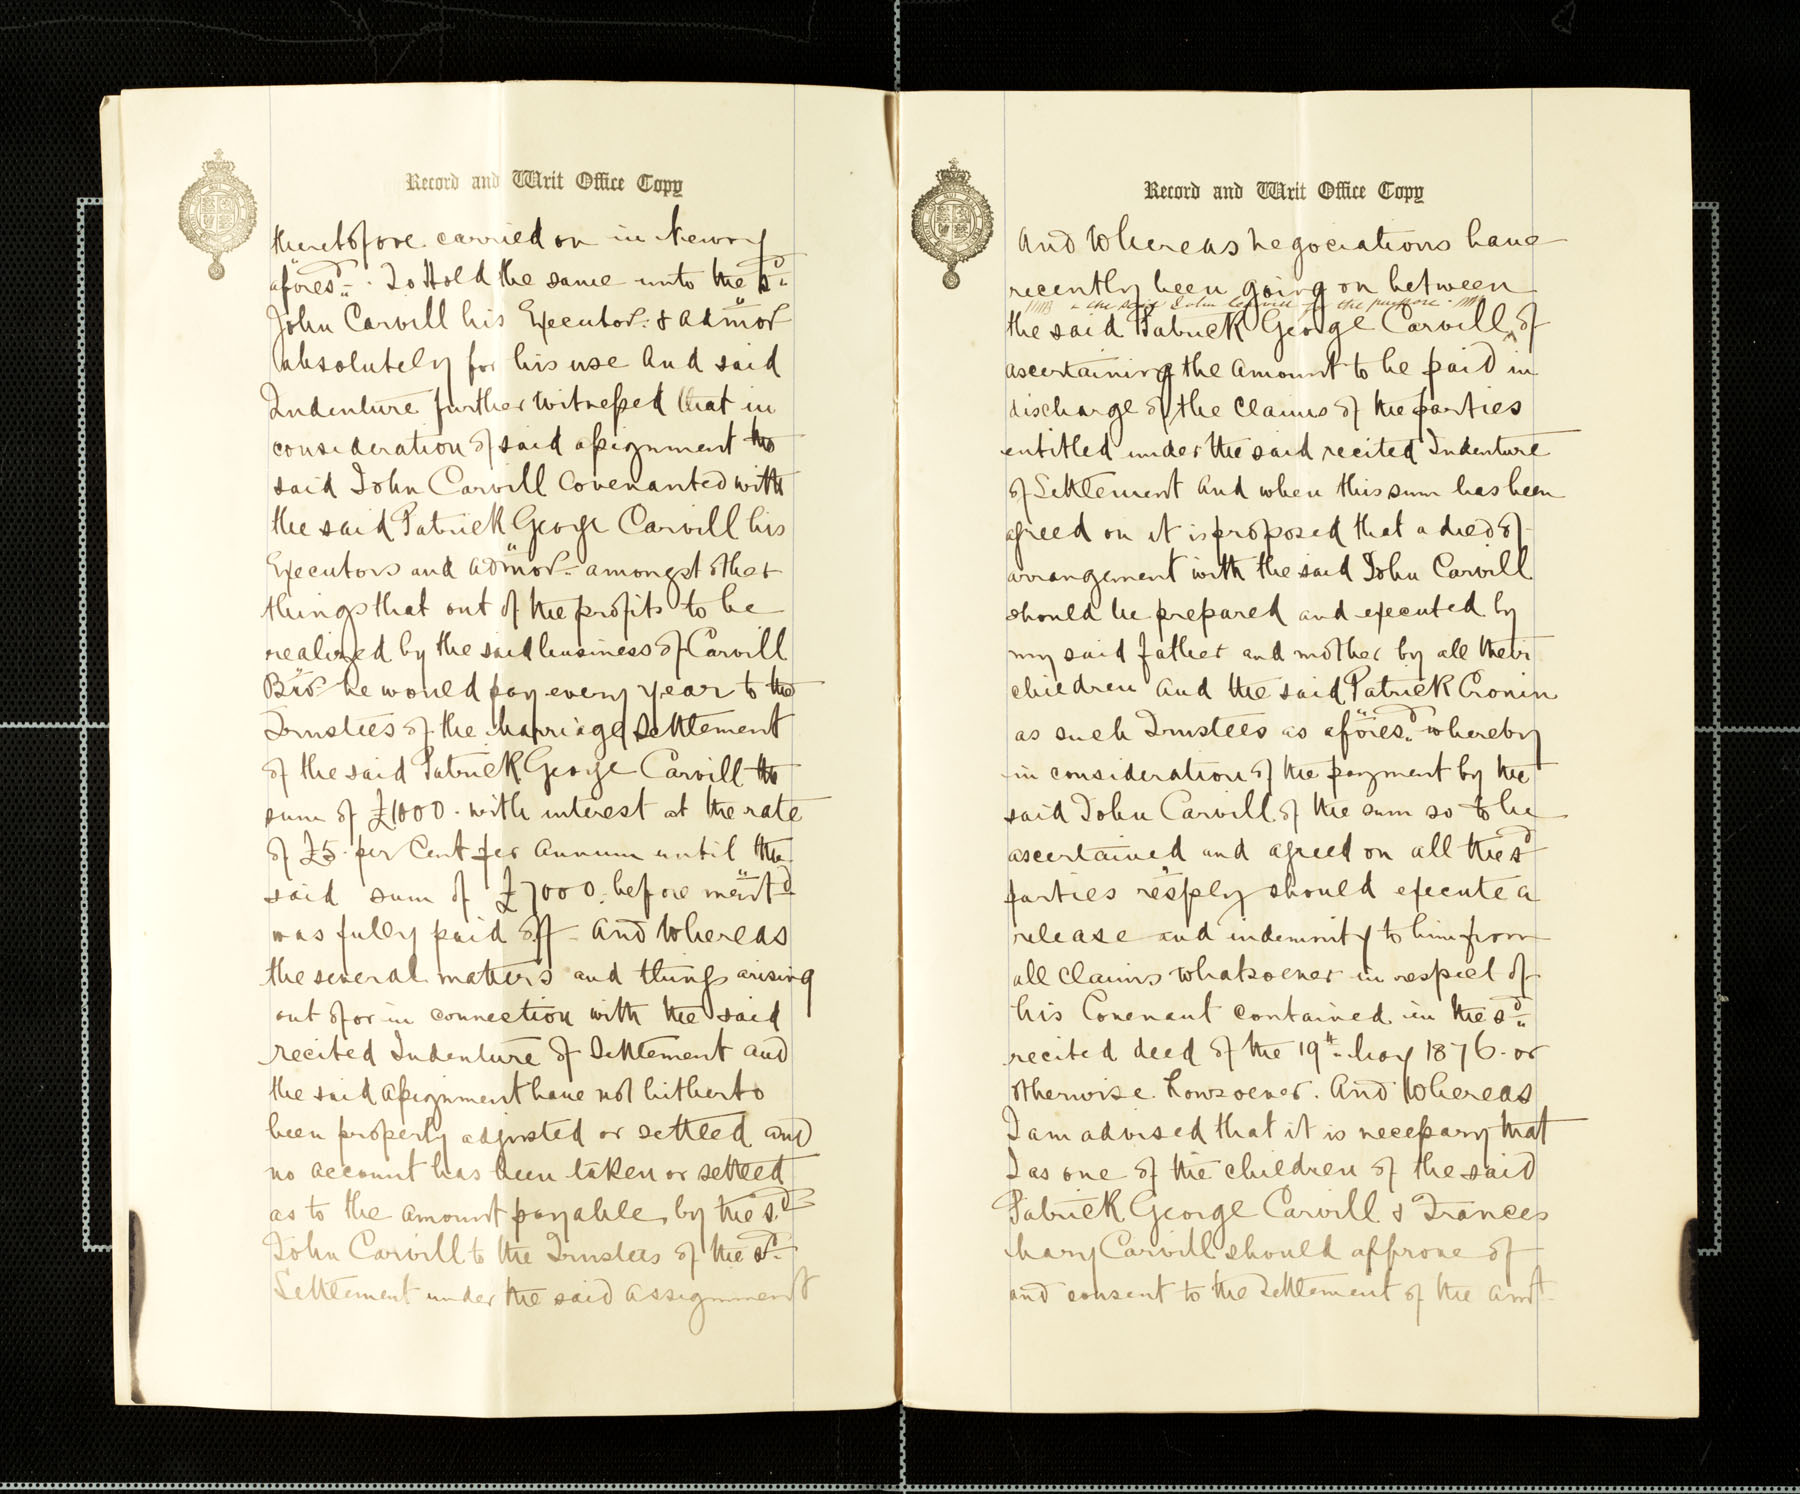 Record and Writ Office Copy
theretofore carried on in Newry
afores.d To Hold the same unto the s.d
John Carvill his Executors & admors
absolutely for his use And said
Indenture further Witnessed that in
consideration of said assignment the
said John Carvill Covenanted with
the said Patrick George Carvill his
Executors and admors amongst other
things that out of the profits to be
realized by the said business of Carvill
Bros he would pay every year to the
Trustees of the Marriage Settlement
of the said Patrick George Carvill the
sum of £1000 with interest at the rate
of £5 per Cent per Annum until the
said sum of £7000 before ment.d
was fully paid off - And Whereas
the several matters and things arising
out of or in connection with the said
recited Indenture of Settlement and
the said assignment have not hitherto
been properly adjusted or settled and
no account has been taken or settled
as to the amount payable by the s.d
John Carvill to the Trustees of the s.d
Settlement under the said assignment
Record and Writ Office Copy
And Whereas negociations have
recently been going on between
& the said John Carvill for the purpose
the said Patrick George Carvill of
ascertaining the amount to be paid in
discharge of the claims of the parties
entitled under the said recited Indenture
of Settlement And when this sum has been
agreed on it is proposed that a deed of
arrangement with the said John Carvill
should be prepared and executed by
my said father and mother by all their
children And the said Patrick Cronin
as such Trustees as afores.d whereby
in consideration of the payment by the
said John Carvill of the sum so to be
ascertained and agreed on all the s.d
parties resply should execute a
release and indemnity to him from
all claims whatsoever in respect of
his Covenant contained in the s.d
recited deed of the 19th May 1876 or
otherwise howsoever. And Whereas
I am advised that it is necessary that
I as one of the children of the said
Patrick George Carvill & Frances
Mary Carvill should approve of
and consent to the settlement of the amt